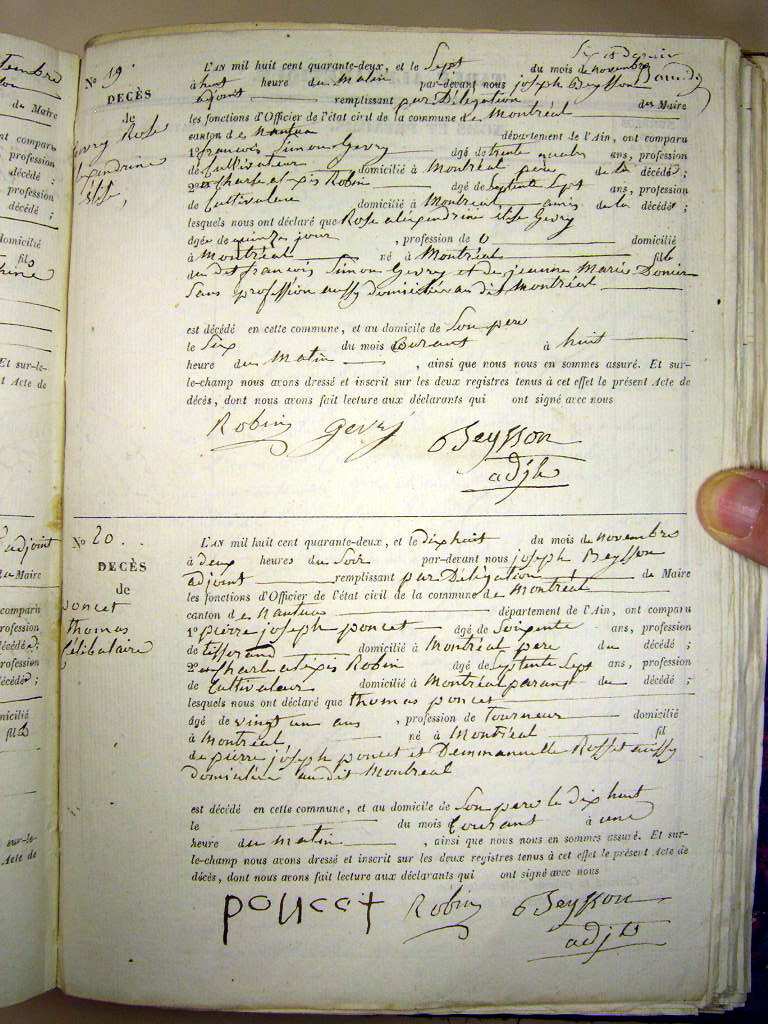 No 19.
DECÈS
de
Gevry Rose
alexendrine
élise,
L'AN mil huit cent quarante-deux, et le Sept du mois de novembre
à huit heure du Matin par-devant nous joseph Beysson
adjoint remplissant par Délégation des Maire
les fonctions d'Officier de l'état civil de la commune de Montréal
canton de Nantua département de l'Ain, ont comparu
1º francois Simon Gevry âgé de trente quatre ans, profession
de Cultivateur domicilié à Montréal père de la décédé ;
2º et Charle alexis Robin âgé de Septente Sept ans, profession
de Cultivateur domicilié à Montréal, amis de la décédé ;
lesquels nous ont déclaré que Rose alexendrine elise Gevry
âgée de quinze jour , profession de 0 domicilié
à Montréal né à Montréal fille
du dit francois Simon Gevry et de jeanne Marie
Sans profession aussy domiciliée au dit Montréal
est décédé en cette commune, et au domicile de Son pere
le Six du mois Courant à huit
heure du Matin , ainsi que nous nous en sommes assuré. Et sur-
le-champ nous avons dressé et inscrit sur les deux registres tenus à cet effet le présent Acte de
décès, dont nous avons fait lecture aux déclarants qui ont signé avec nous
Robin gevry Beysson
adjt
No 20.
DECÈS
de
poncet
thomas
Célibataire
L'AN mil huit cent quarante-deux, et le dix huit du mois de novembre
à deux heures du Soir par-devant nous joseph Beysson
adjoint remplissant par Délégation du Maire
les fonctions d'Officier de l'état civil de la commune de Montréal
canton de Nantua département de l'Ain, ont comparu
1º pierre joseph poncet âgé de Soixente ans, profession
de tisserand domicilié à Montréal pere du décédé ;
2º et Charle alexis Robin âgé de Septente Sept ans, profession
de Cultivateur domicilié à Montréal parant du décédé ;
lesquels nous ont déclaré que thomas poncet
âgé de vingt un ans , profession de tourneur domicilié
à Montréal, né à Montréal fils
de pierre joseph poncet et Demmanuelle Rosset aussy
domiciliée au dit Montréal
est décédé en cette commune, et au domicile de Son pere le dix huit
le du mois Courant à une
heure du matin , ainsi que nous nous en sommes assuré. Et sur-
le-champ nous avons dressé et inscrit sur les deux registres tenus à cet effet le présent Acte de
décès, dont nous avons fait lecture aux déclarants qui ont signé avec nous
poncet Robin Beysson
adjt